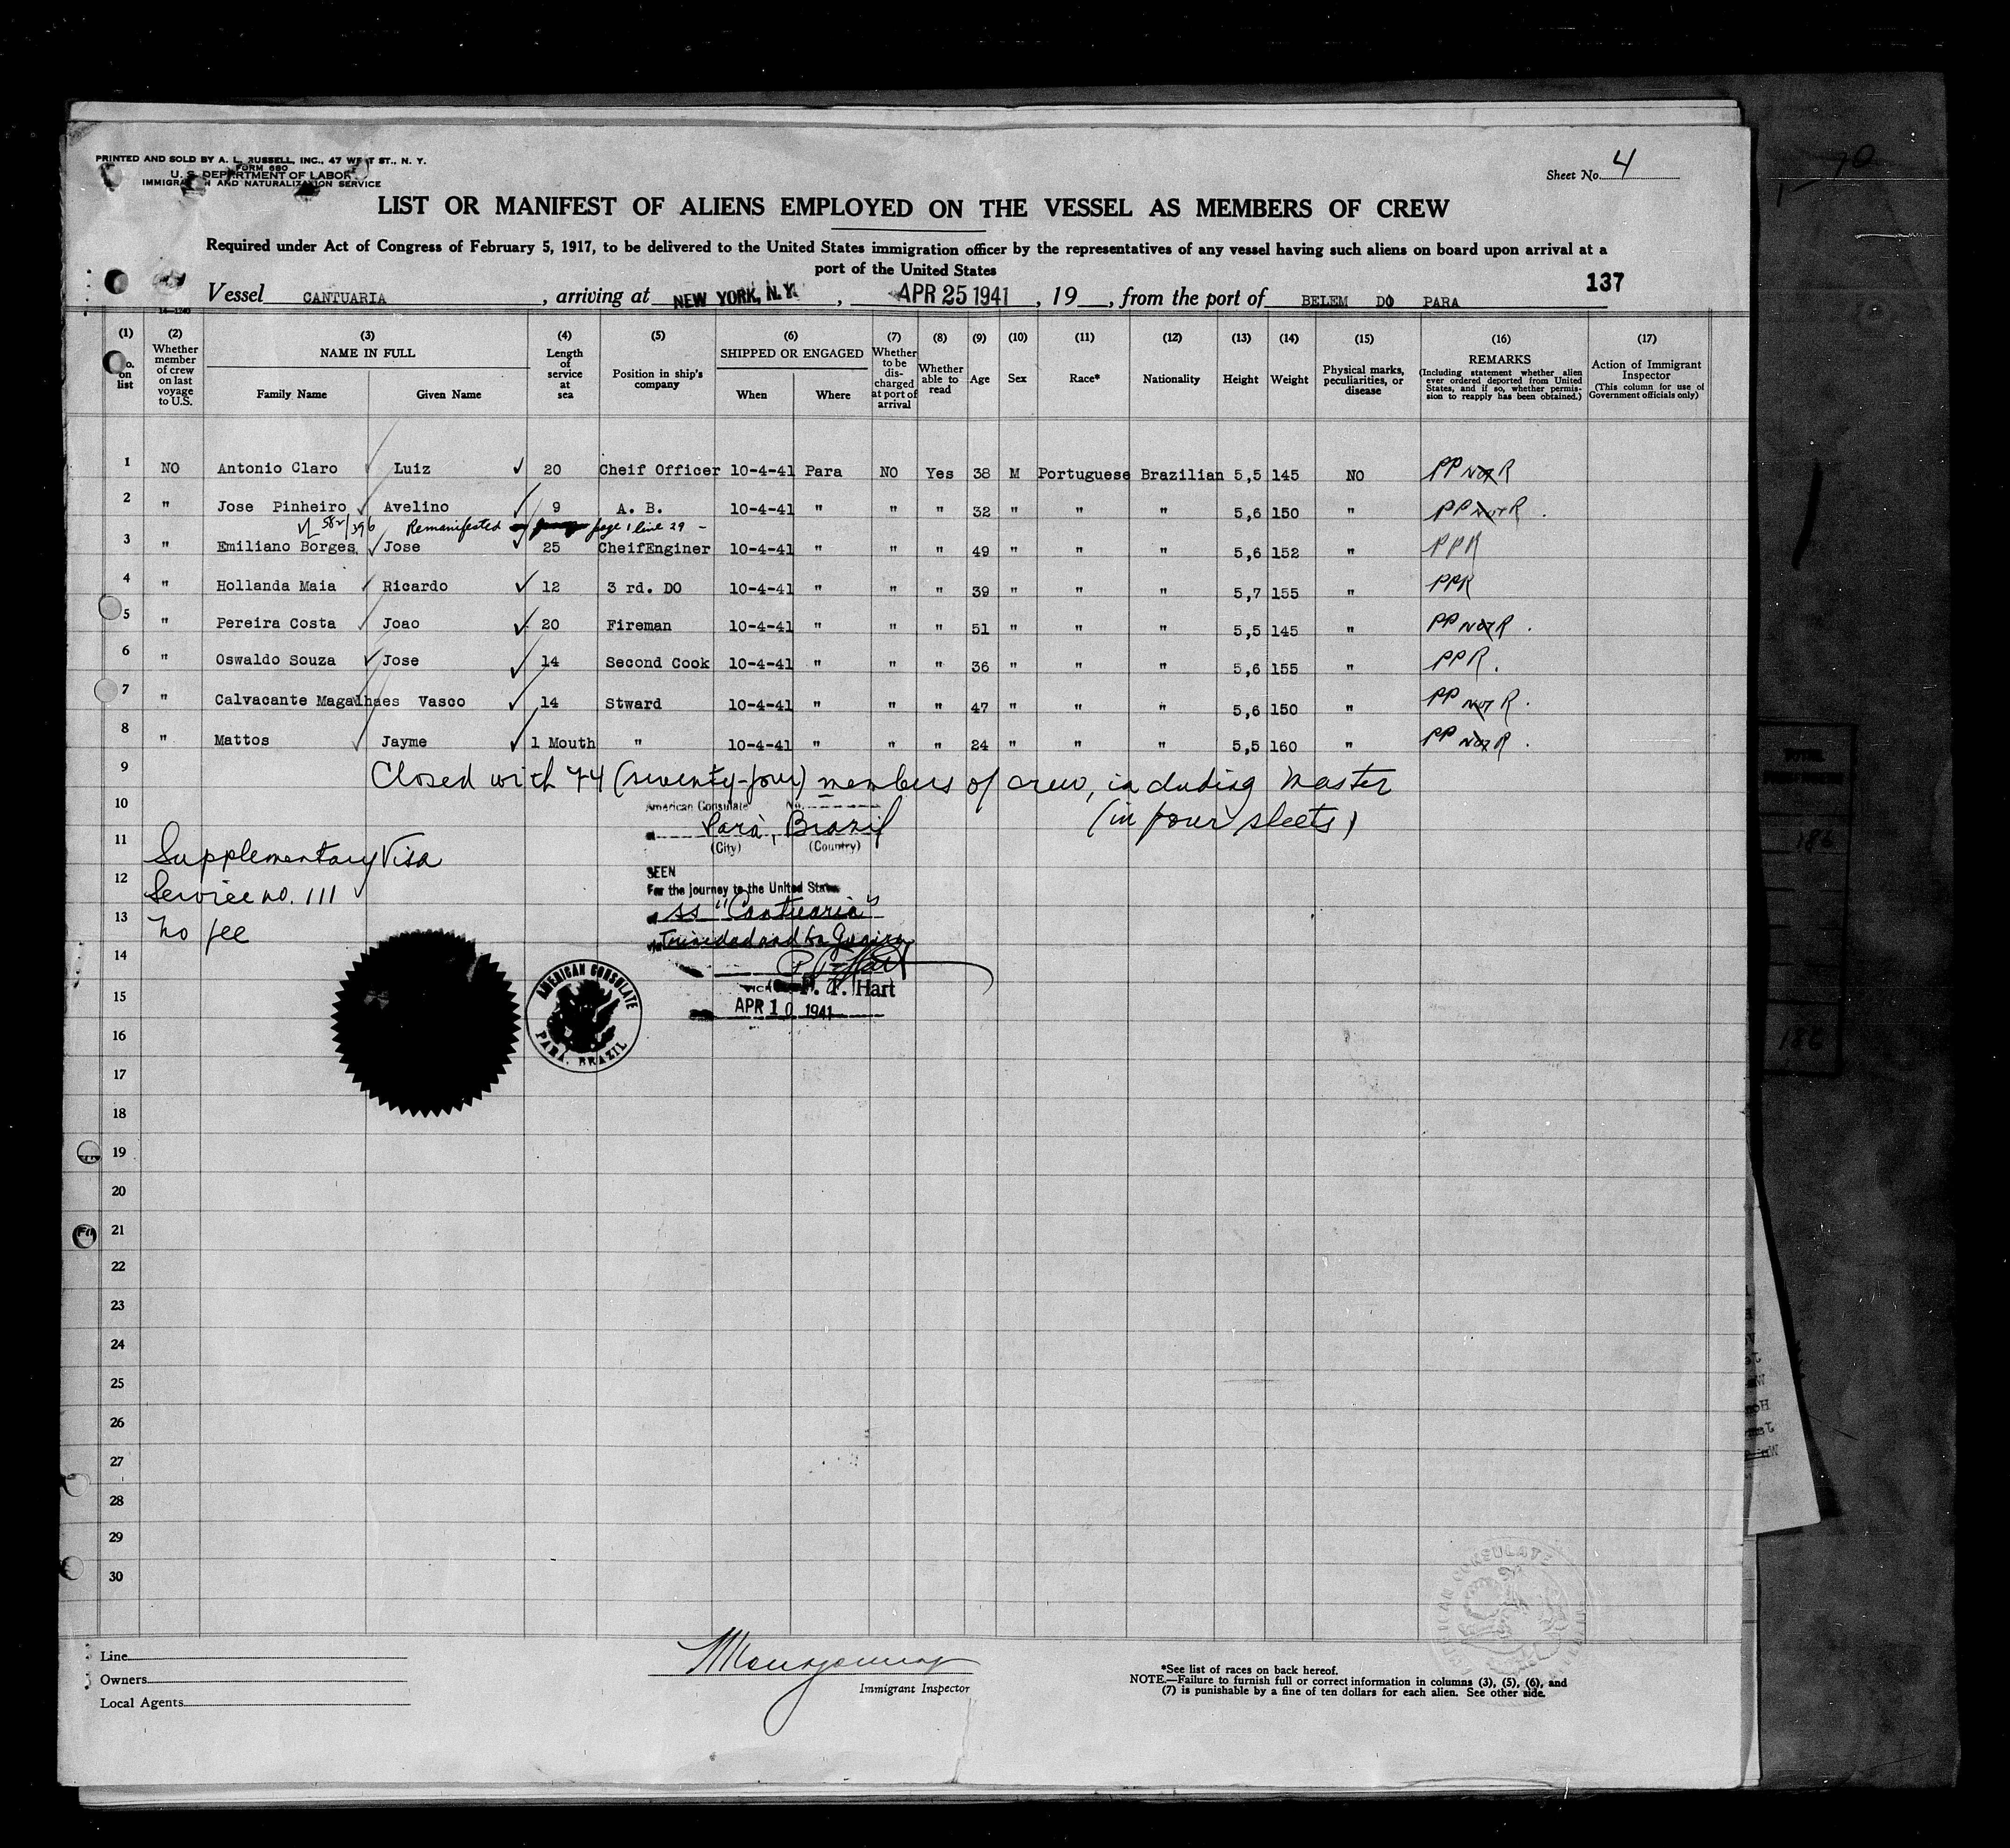 PRINTED AND SOLD BY A. L. RUSSELL, INC., 47 WEST ST., N. Y.
FORM 680
U. S. DEPARTMENT OF LABOR
IMMIGRATION AND NATURALIZATION SERVICE
Sheet No. 4
LIST OR MANIFEST OF ALIENS EMPLOYED ON THE VESSEL AS MEMBERS OF CREW
Required under Act of Congress of February 5, 1917, to be delivered to the United States immigration officer by the representatives of any vessel having such aliens on board upon arrival at a
port of the United States
137
Vessel CANTUARIA, arriving at NEW YORK, N.Y., APR 25 1941, 19 , from the port of BELEM DO PARA
14—1240
(1) (2) (3) (4) (5) (6) (7) (8) (9) (10) (11) (12) (13) (14) (15) (16) (17)
No. on list
Whether member of crew on last voyage to U.S.
NAME IN FULL
Family Name Given Name
Length of service at sea
Position in ship's company
SHIPPED OR ENGAGED
When Where
Whether to be discharged at port of arrival
Whether able to read
Age
Sex
Race*
Nationality
Height
Weight
Physical marks, peculiarities, or disease
REMARKS
(Including statement whether alien ever ordered deported from United States, and if so, whether permission to reapply has been obtained.)
Action of Immigrant Inspector
(This column for use of Government officials only)
1 NO Antonio Claro Luiz 20 Cheif Officer 10-4-41 Para NO Yes 38 M Portuguese Brazilian 5,5 145 NO PP Not R
2 " Jose Pinheiro Avelino 9 A. B. 10-4-41 " " " 32 " " " 5,6 150 " PP Not R .
582/396 Remanifested page 1 line 29 -
3 " Emiliano Borges Jose 25 CheifEnginer 10-4-41 " " " 49 " " " 5,6 152 " PPR
4 " Hollanda Maia Ricardo 12 3 rd. DO 10-4-41 " " " 39 " " " 5,7 155 " PPR
5 " Pereira Costa Joao 20 Fireman 10-4-41 " " " 51 " " " 5,5 145 " PP Not R .
6 " Oswaldo Souza Jose 14 Second Cook 10-4-41 " " " 36 " " " 5,6 155 " PPR .
7 " Calvacante Magalhaes Vasco 14 Stward 10-4-41 " " " 47 " " " 5,6 150 " PP Not R .
8 " Mattos Jayme 1 Mouth " 10-4-41 " " " 24 " " " 5,5 160 " PP Not R .
9
Closed with 74 (seventy-four) members of crew, including Master
10
(in four sheets)
American Consulate No.
Pará, Brazil
(City) (Country)
11
Supplementary Visa
12
Service no. 111
13
No fee
SEEN
For the journey to the United States
SS "Cantuaria"
via Trinidad and La Guaira
14
P. T. Hart
P. T. Hart
15
APR 10 1941
AMERICAN CONSULATE
PARA, BRAZIL
16
17
18
19
20
21
22
23
24
25
26
27
28
29
30
AMERICAN CONSULATE
Line
Owners
Local Agents
Immigrant Inspector
*See list of races on back hereof.
NOTE.—Failure to furnish full or correct information in columns (3), (5), (6), and
(7) is punishable by a fine of ten dollars for each alien. See other side.
186
186